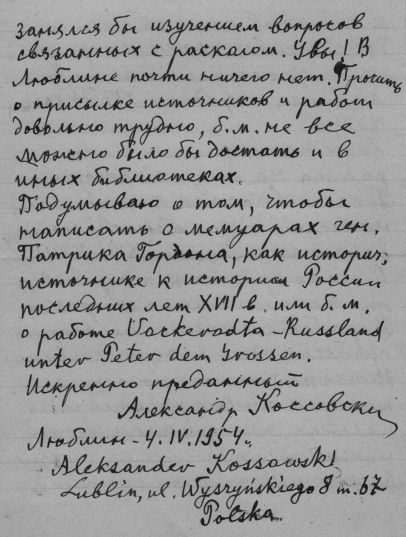 занялся бы изучением вопросов
связанных с раскалом. Увы! В
Люблине почти ничего нет. Просить
о присылке источников и работ
довольно трудно, б.м. не все
можно было бы достать и в
иных библиотеках.
Подумываю о том, чтобы
написать о мемуарах ген.
Патрика Гордона, как историч.
источнике к истории России
последних лет XVII в. или б.м.
о работе Vockerodta - Russland
unter Peter dem Grossen.
Искренно преданный
Александр Коссовски
Люблин - 4.IV.1954.
Aleksander Kossowski
Lublin, ul. Wyszyńskiego 8 m. 67
Polska